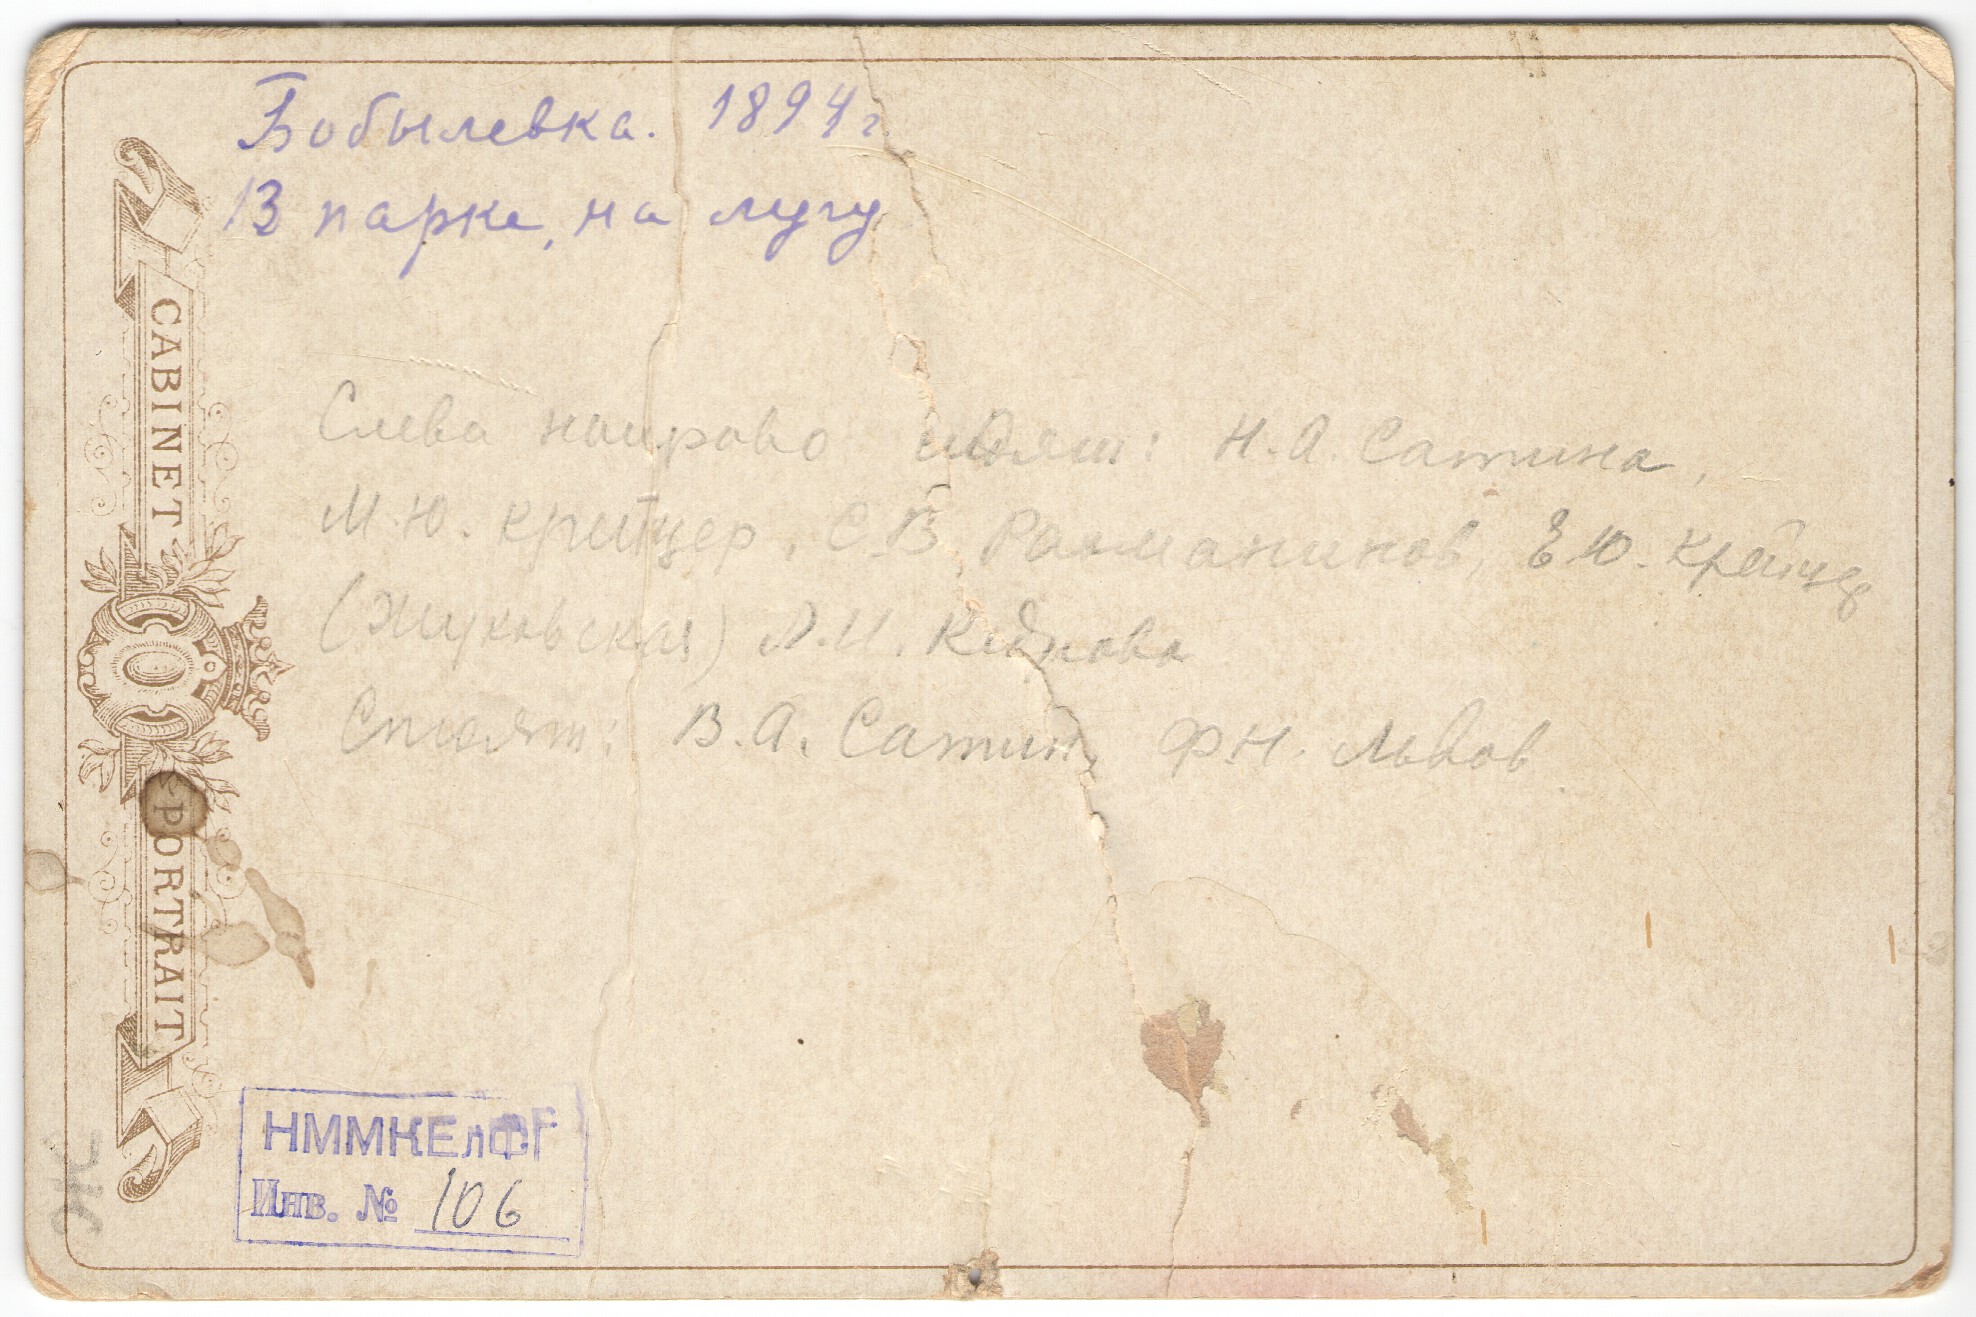 Бобылевка. 1894 г
В парке, на лугу
CABINET PORTRAIT
Слева направо сидят: Н. А. Сатина,
М. Ю. Крейцер, С. В. Рахманинов, Е Ю. Крейцер
(Жуковская)
Стоят: В. А. Сатин, Ф Н. Львов
НММКЕлФГ
Инв. № 106
Ж